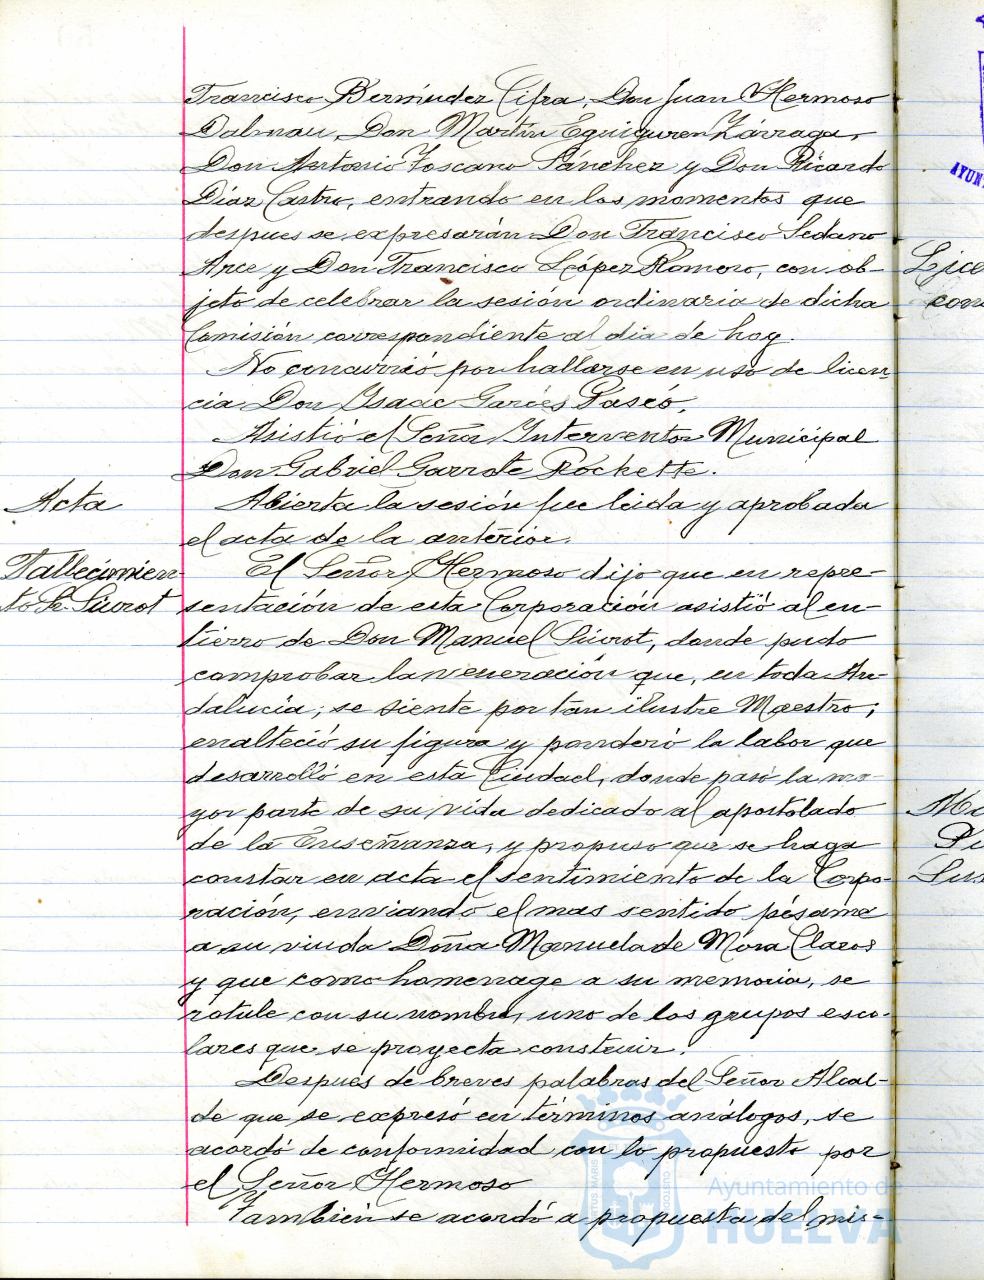 Francisco Bermúdez Cifra, Don Juan Hermoso
Dalmau, Don Martín Eguiguren Zárraga,
Don Antonio Toscano Sánchez y Don Ricardo
Díaz Castro, entrando en los momentos que
despues se expresarán Don Francisco Sedano
Arce y Don Francisco López Romero, con ob-
jeto de celebrar la sesión ordinaria de dicha
Comisión correspondiente al dia de hoy.
No concurrió por hallarse en uso de licen-
cia Don Isaac Garcés Paseó.
Asistió el Señor Interventor Municipal
Don Gabriel Garrote Rockette.
Acta
Abierta la sesión fue leida y aprobada
el acta de la anterior.
Fallecimien-
to Sr. Siurot
El Señor Hermoso dijo que en repre-
sentación de esta Corporación asistió al en-
tierro de Don Manuel Siurot, donde pudo
comprobar la veneración que, en toda An-
dalucía, se siente por tan ilustre Maestro;
enalteció su figura y ponderó la labor que
desarrolló en esta Ciudad, donde pasó la ma-
yor parte de su vida dedicado al apostolado
de la Enseñanza, y propuso que se haga
constar en acta el sentimiento de la Corpo-
ración, enviando el mas sentido pésame
a su viuda Doña Manuela de Mora Claros
y que como homenage a su memoria, se
rotule con su nombre, uno de los grupos esco-
lares que se proyecta construir.
Despues de breves palabras del Señor Alcal-
de que se expresó en términos análogos, se
acordó de conformidad con lo propuesto por
el Señor Hermoso
Tambien se acordó a propuesta del mis-
Ayuntamiento de
HUELVA